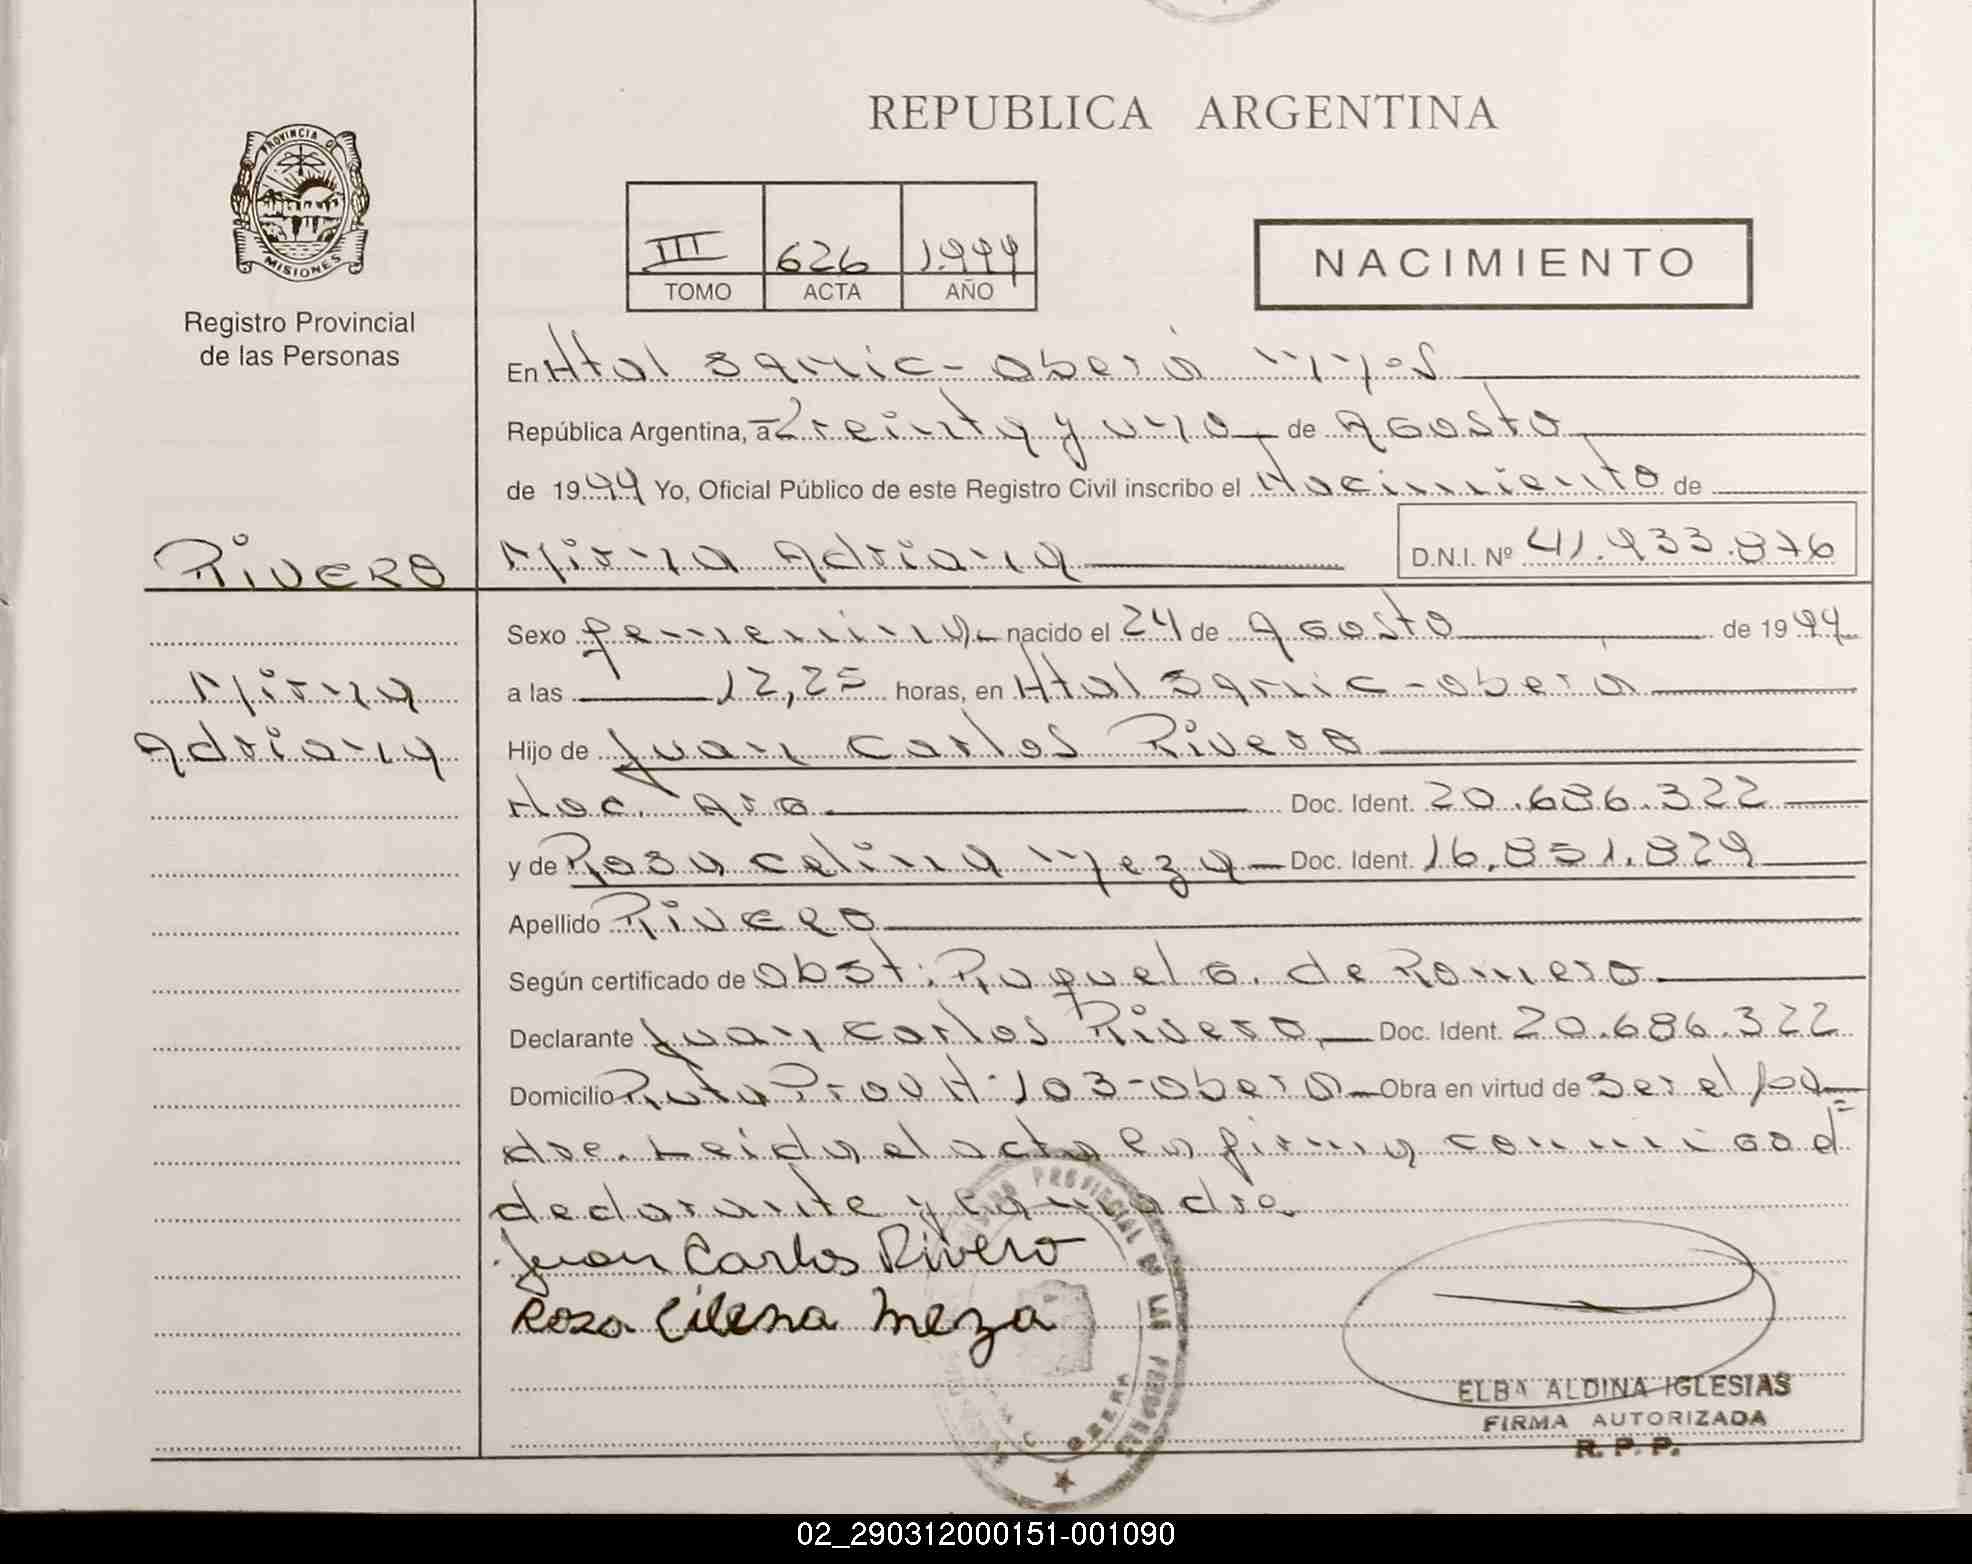 REPUBLICA ARGENTINA
PROVINCIA DE
MISIONES
Registro Provincial
de las Personas
III 626 1.999
TOMO ACTA AÑO
NACIMIENTO
En Htal Samic - Oberá
República Argentina, a Treinta y uno de Agosto
de 1999 Yo, Oficial Público de este Registro Civil inscribo el Nacimiento de
RIVERO
Mirna Adriana D.N.I. Nº 41.933.876
Sexo femenino nacido el 24 de Agosto de 1999
Mirna
Adriana
a las 12,25 horas, en Htal Samic - Oberá
Hijo de Juan Carlos Rivero
Nac. Arg. Doc. Ident. 20.686.322
y de Rosa Celina Meza Doc. Ident. 16.851.829
Apellido RIVERO
Según certificado de Obst: Raquel G. de Romero
Declarante Juan Carlos Rivero Doc. Ident. 20.686.322
Domicilio Ruta Prov Nº 103 - Oberá Obra en virtud de ser el pa=
dre. Leida el acta la firma conmigo el
declarante y la madre.
Juan Carlos Rivero
Roza Cilena Meza
REGISTRO PROVINCIAL DE LAS PERSONAS
OBERA
ELBA ALDINA IGLESIAS
FIRMA AUTORIZADA
R. P. P.
02_290312000151-001090